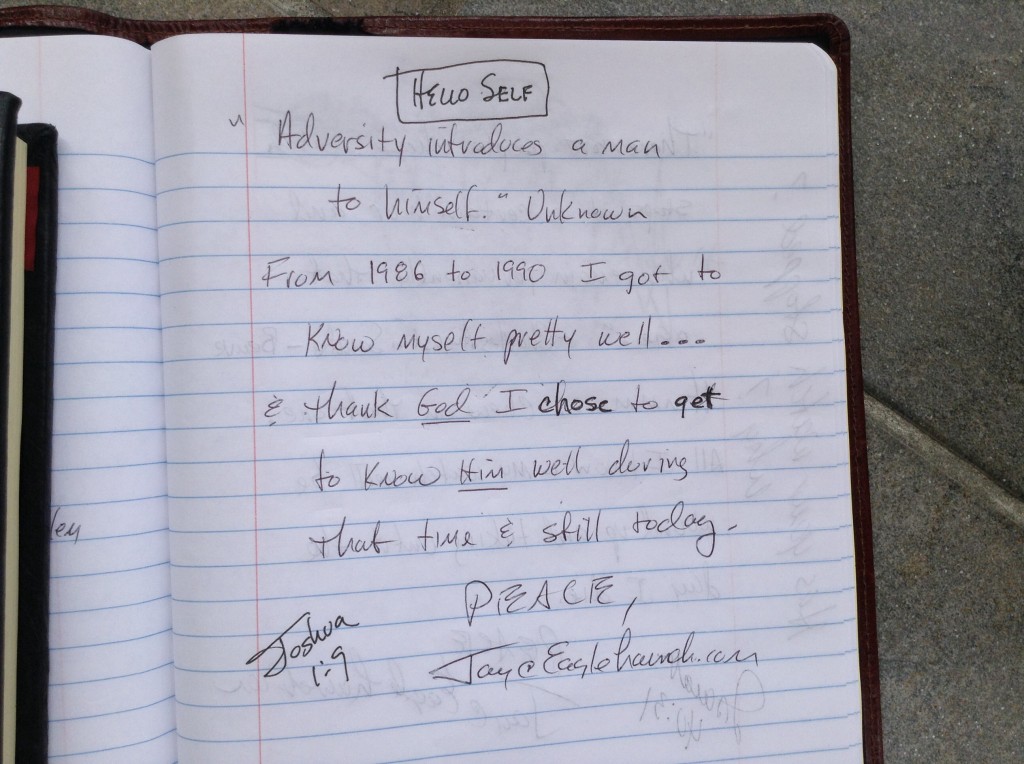 HELLO SELF
" Adversity introduces a man
to himself." Unknown
From 1986 to 1990 I got to
Know myself pretty well...
& thank God I chose to get
to know Him well during
that time & still today.
PEACE,
Joshua
1:9
ley